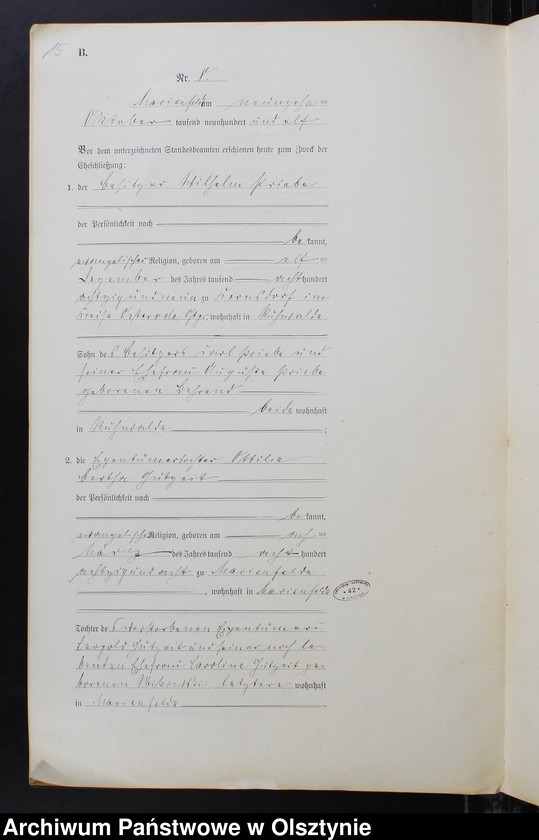 15
B.
Nr. 8.
Marienfelde am neunzehn=
Oktober tausend neunhundert und elf
Vor dem unterzeichneten Standesbeamten erschienen heute zum Zweck der
Eheschließung:
1. der Besitzer Wilhelm Priebe
der Persönlichkeit nach
be kannt,
evangelischer Religion, geboren am elf=
Dezember des Jahres tausend acht hundert
achtzig und neun zu Kernsdorf im
Kreise Osterode Ostpr., wohnhaft in Ruhwalde
Sohn des Besitzers Karl Priebe und
seiner Ehefrau Auguste Priebe
geborenen Behrend
beide wohnhaft
in Ruhwalde ;
2. die Eigentümertochter Ottilie
Bertha Gutzeit
der Persönlichkeit nach
be kannt,
evangelischer Religion, geboren am
März des Jahres tausend acht hundert
achtzig und acht zu Marienfelde
, wohnhaft in Marienfelde
* 42 *
Tochter des verstorbenen Eigentümers
Leopold Gutzeit und seiner noch le=
benden Ehefrau Caroline Gutzeit ge=
borenen letztere wohnhaft
in Marienfelde
Archiwum Państwowe w Olsztynie